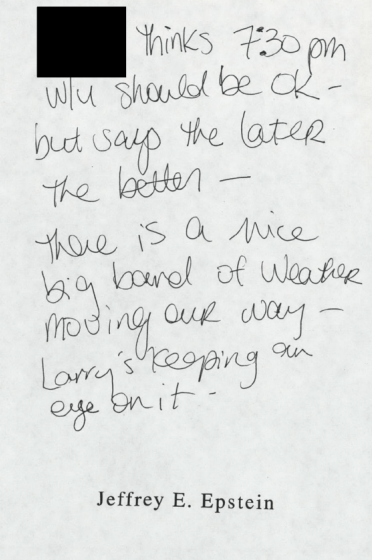 thinks 7:30 pm
w/u should be OK -
but says the later
the better -
there is a nice
big band of weather
moving our way -
Larry's keeping an
eye on it -
Jeffrey E. Epstein